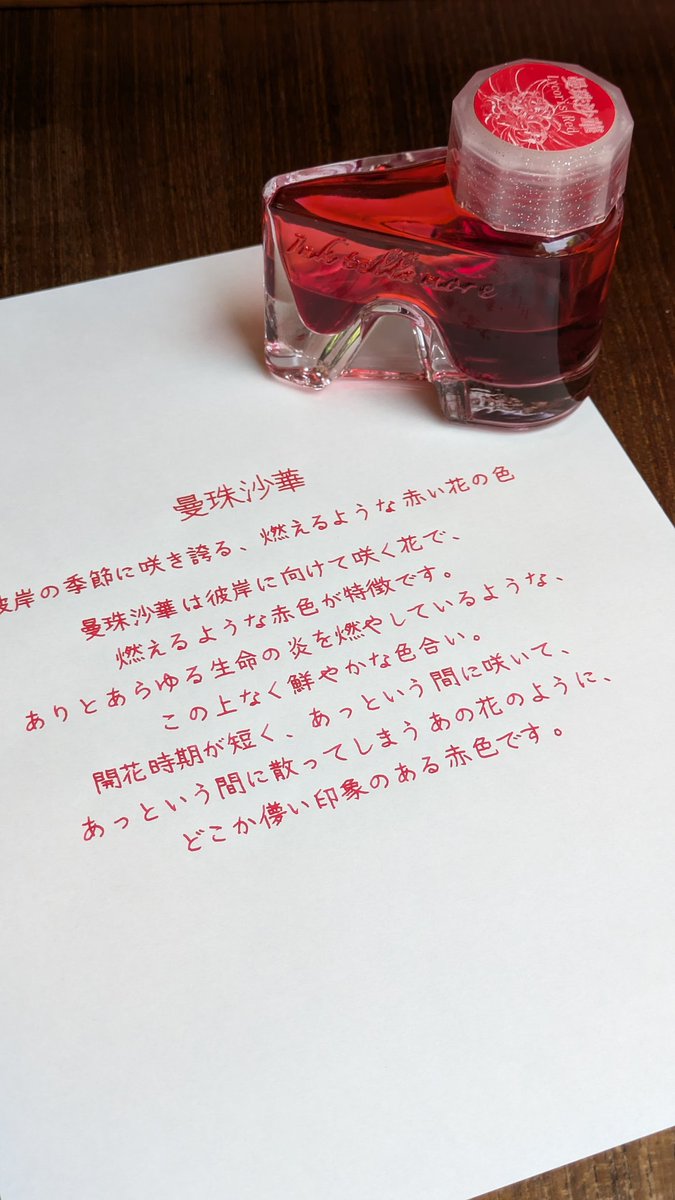 曼珠沙華
Lycoris Red
Ink bottle more
曼珠沙華
彼岸の季節に咲き誇る、燃えるような赤い花の色
曼珠沙華は彼岸に向けて咲く花で、
燃えるような赤色が特徴です。
ありとあらゆる生命の炎を燃やしているような、
この上なく鮮やかな色合い。
開花時期が短く、あっという間に咲いて、
あっという間に散ってしまうあの花のように、
どこか儚い印象のある赤色です。